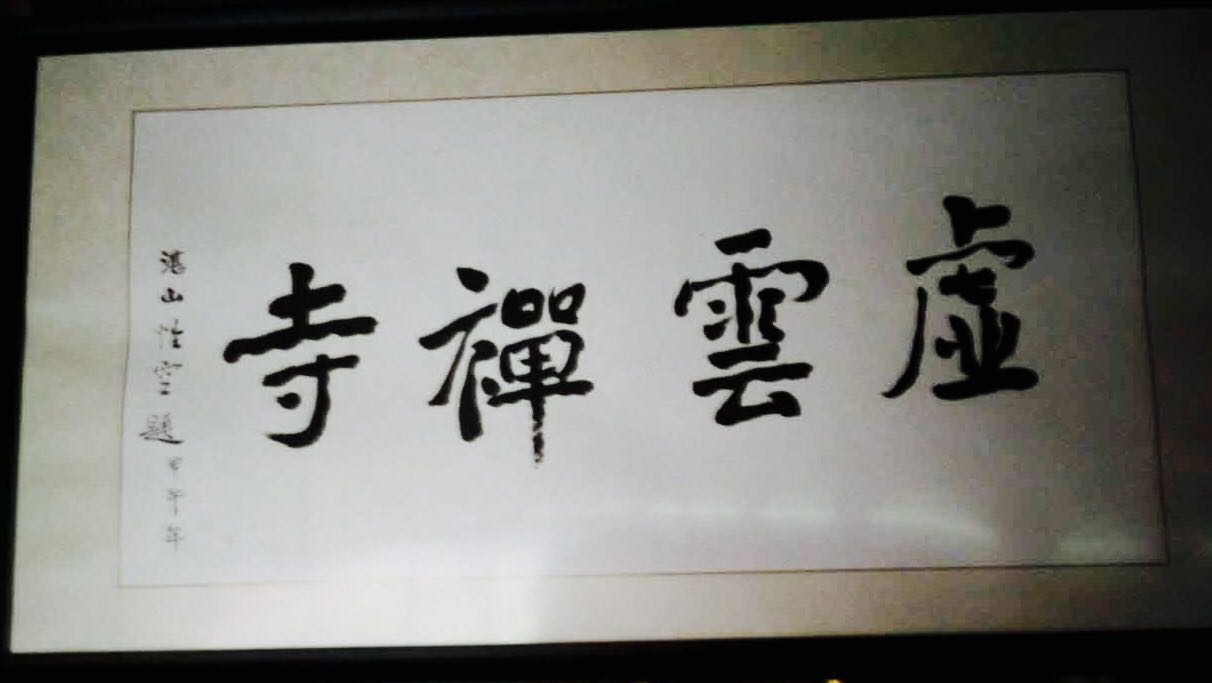 虛雲禪寺
湛山性空題甲午年